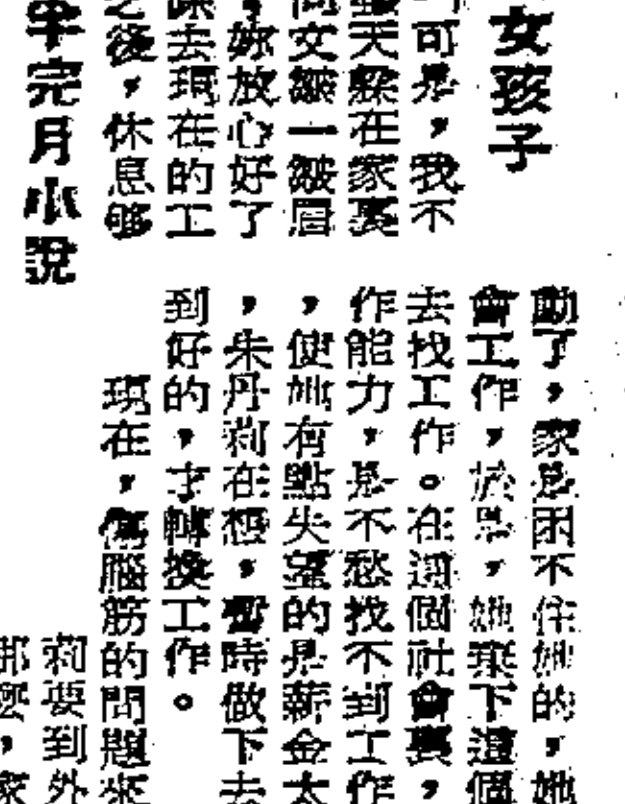 女孩子
可是，我不
天躲在家裏
女皺一皺眉
，妳放心好了
去現在的工
之後，休息够
完月小說
動了，家是困不住她的，她
會工作，於是，她棄下這個
去找工作。在這個社會裏，
作能力，是不愁找不到工作
，使她有點失望的是薪金太
，朱丹莉在想，暫時做下去
到好的，才轉換工作。
現在，傷腦筋的問題來
莉要到外
那麼，家